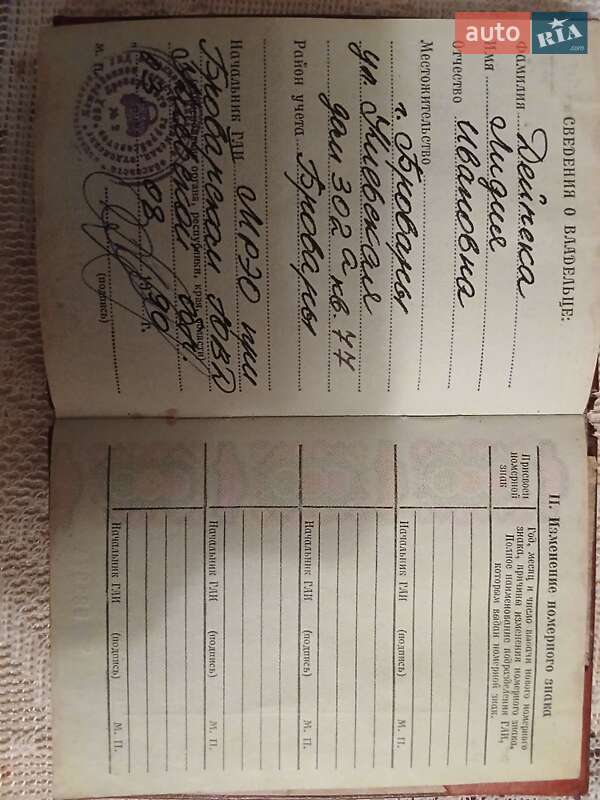 auto RIA .com
СВЕДЕНИЯ О ВЛАДЕЛЬЦЕ:
Фамилия Дейнека
Имя Лидия
Отчество Ивановна
Местожительство
г. Бровары
ул. Киевская
дом 302а кв. 77
Район учета Бровары
Начальник ГАИ МРЭО при
Броварском ЮВД
Киевской обл.
08 1990 г.
М. П.
(подпись)
II. Изменение номерного знака
Присвоен номерной знак
Год, месяц и число выдачи нового номерного знака, причина изменения номерного знака. Полное наименование подразделения ГАИ, которым выдан номерной знак.
Начальник ГАИ (подпись) М. П.
Начальник ГАИ (подпись) М. П.
Начальник ГАИ (подпись) М. П.
Начальник ГАИ (подпись) М. П.